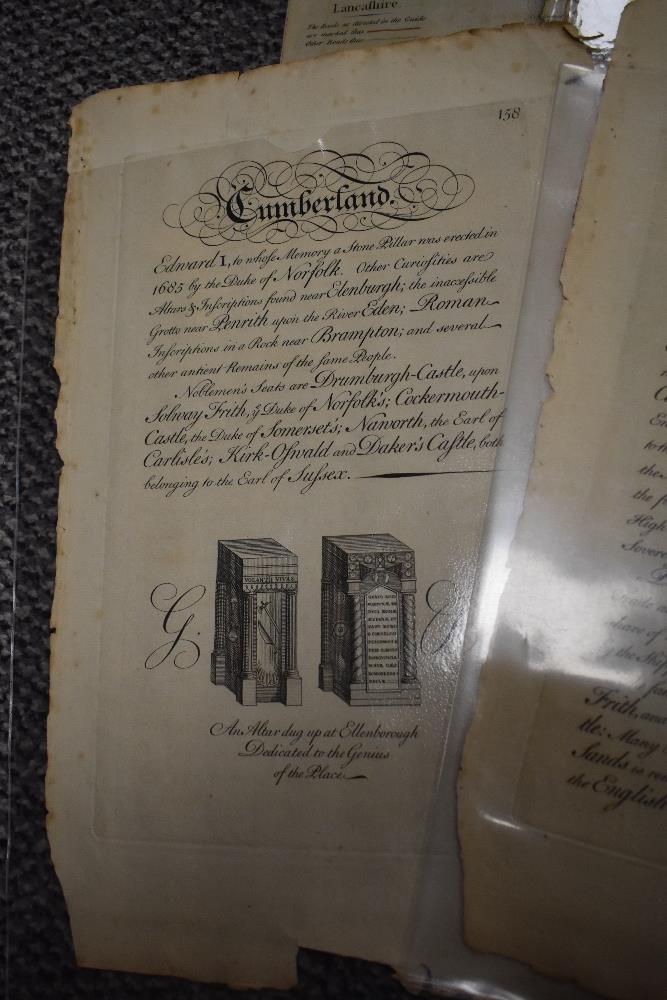 Lancashire
The Roads as directed in the Guide
are marked thus
Other Roads thus
158
Cumberland.
Edward I, to whose Memory a Stone Pillar was erected in
1685 by the Duke of Norfolk. Other Curiosities are
Altars & Inscriptions found near Elenburgh; the inaccessible
Grotto near Penrith upon the River Eden; Roman
Inscriptions in a Rock near Brampton; and several
other antient Remains of the same People.
Noblemen's Seats are Drumburgh-Castle, upon
Solway Frith, ye Duke of Norfolk's; Cockermouth-
Castle, the Duke of Somerset's; Naworth, the Earl of
Carlisle's; Kirk-Oswald and Daker's Castle, both
belonging to the Earl of Sussex.
VOLANTII VIVAS
G.
An Altar dug up at Ellenborough
Dedicated to the Genius
of the Place
the
High
Sovere
share of
the Ship
Frith, and
tle: Many
Sands is
the English